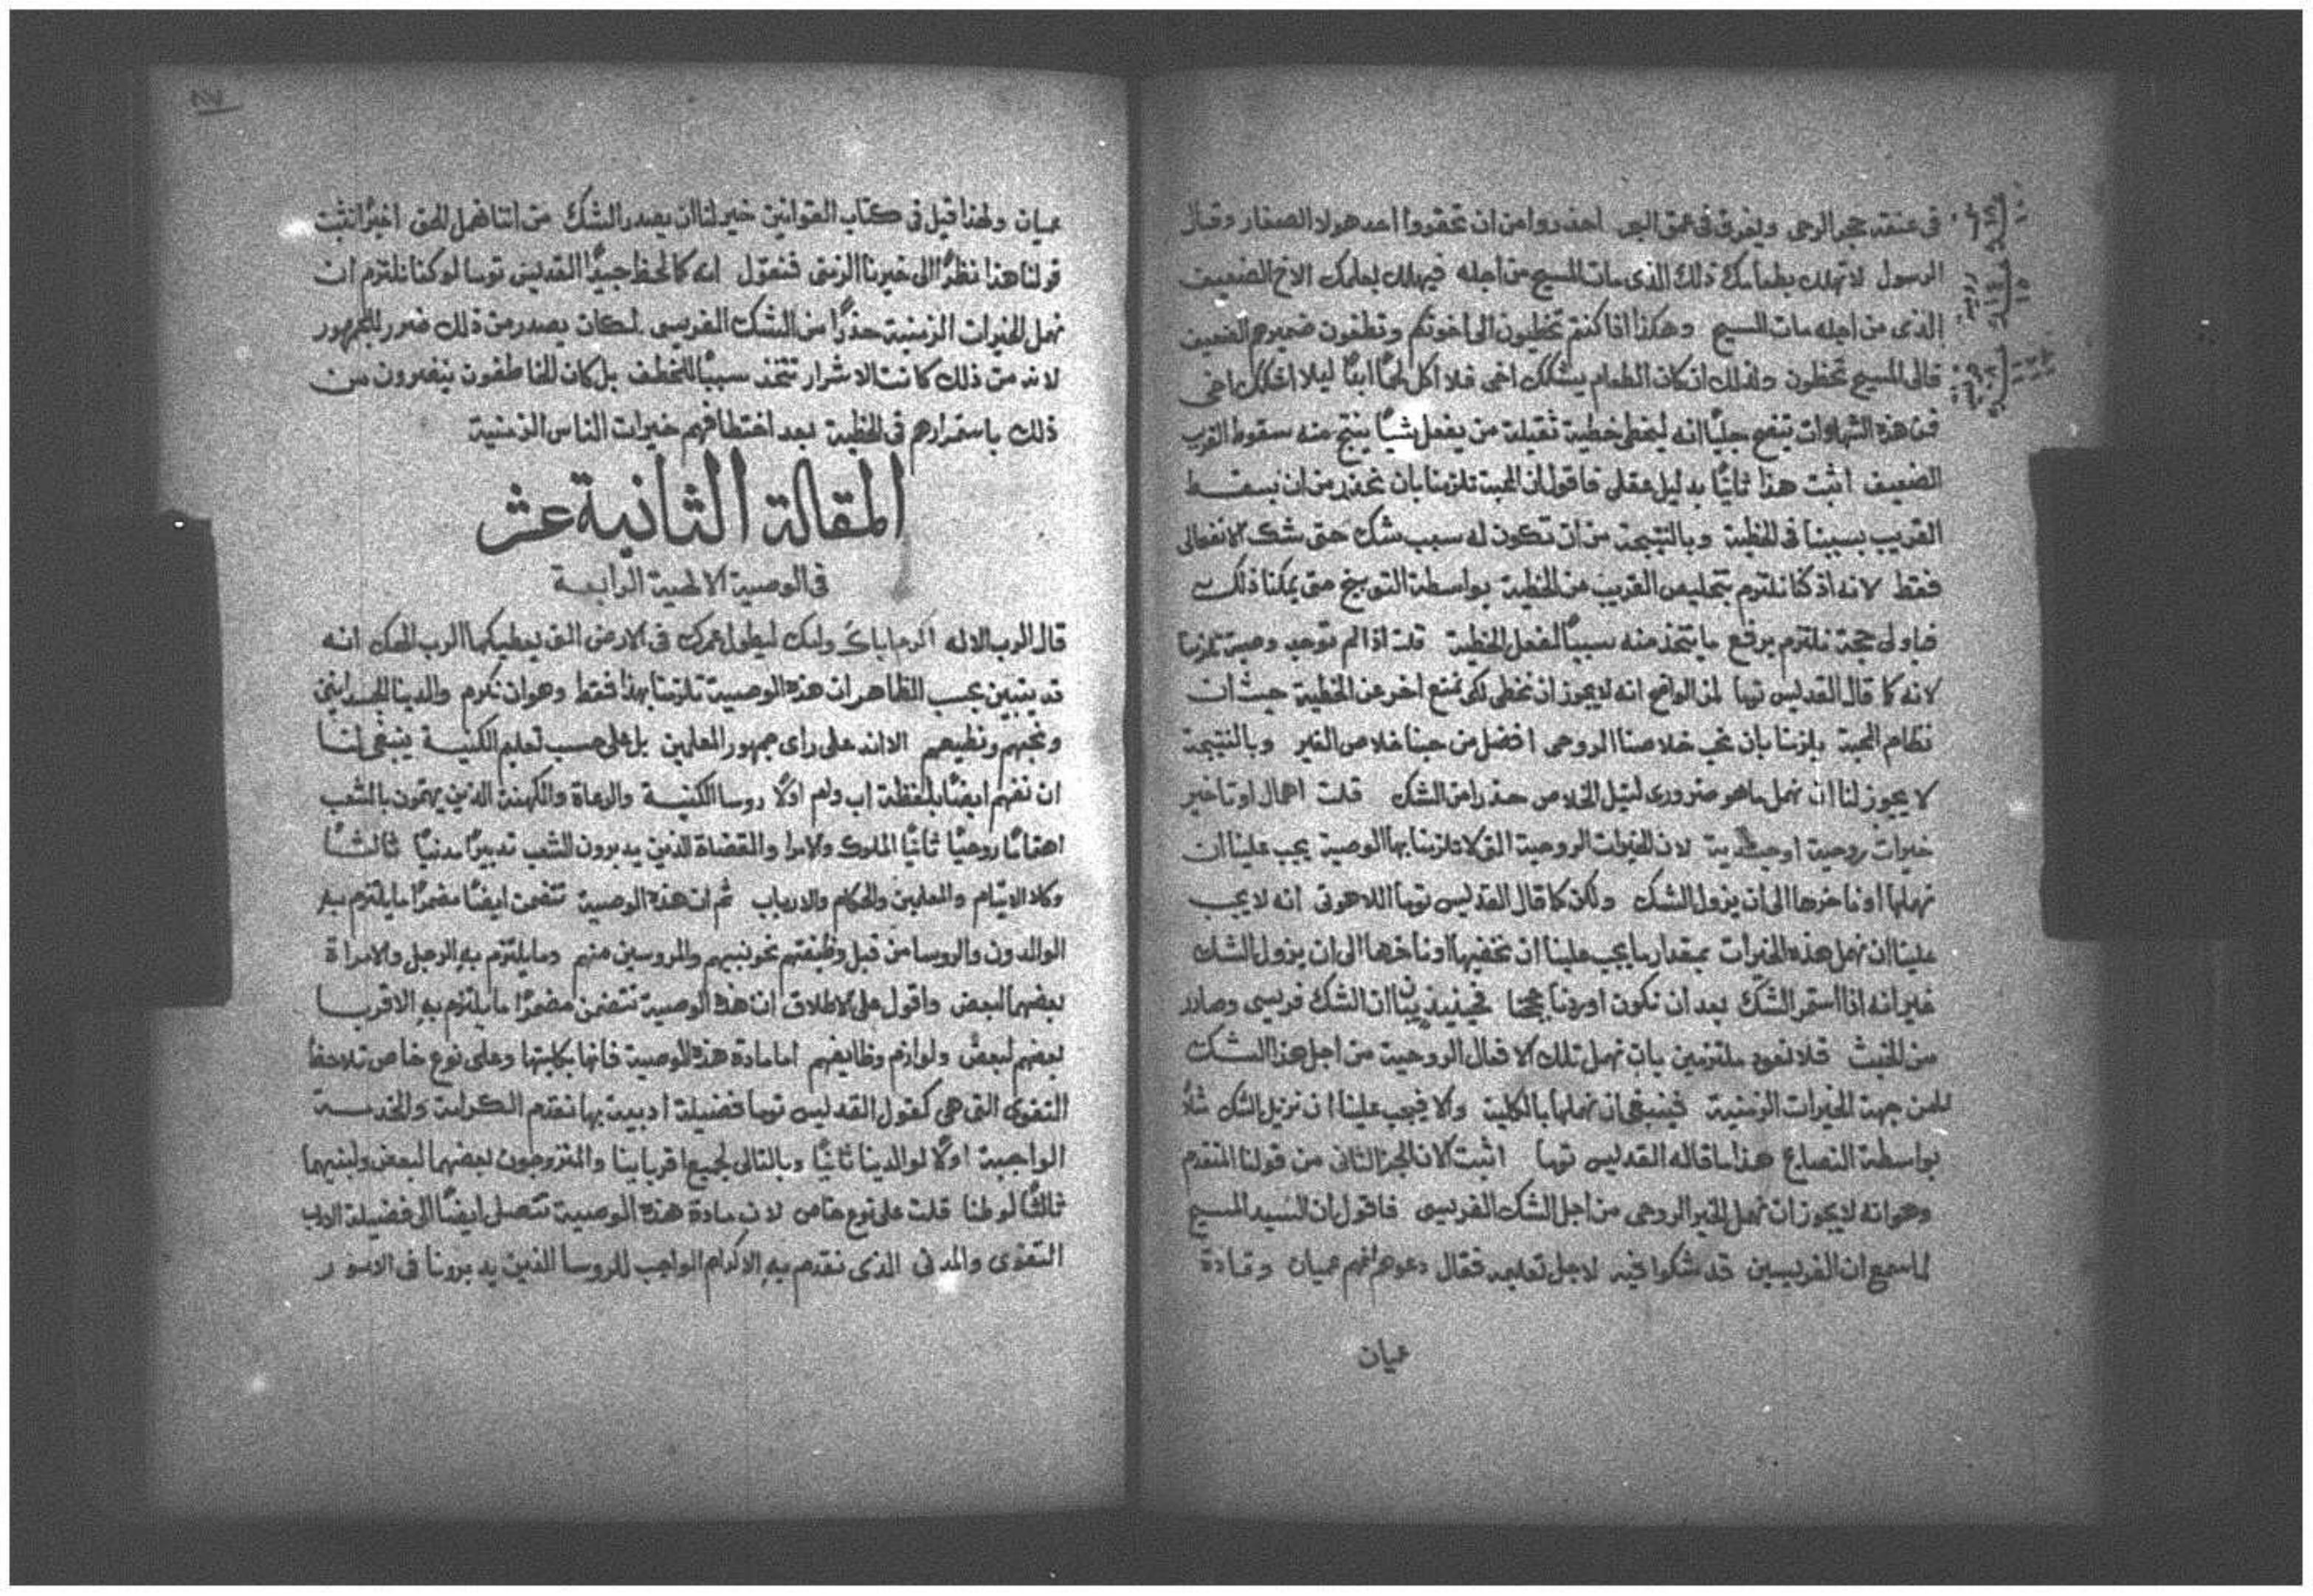 في عنقه حجر الرحى ويغرق في عمق البحر احذروا من ان تحقروا احد هولا الصغار وقال
الرسول لا تهلك بطعامك ذلك الذي مات المسيح من اجله فيهلك بعلمك الاخ الضعيف
الذي من اجله مات المسيح وهكذا اذا كنتم تخطيون الى اخوتكم وتطغون ضميرهم الضعيف
فالى المسيح تخطون ولذلك ان كان الطعام يشكك اخي فلا اكل لحمًا ابدًا ليلا اشكك اخي
فمن هذه الشهادات يتضح جليًا انه ليخطى خطية ثقيلة من يفعل شيًا ينتج منه سقوط القريب
الضعيف اثبت هذا ثانيًا بدليل عقلي فاقول ان المحبة تلزمنا بان نحذر من ان يسقط
القريب بسببنا في الخطية وبالنتيجة من ان نكون له سبب شك حتى شك الانفعالي
فقط لانه اذ كنا نلتزم بتخليص القريب من الخطية بواسطة التوبيخ متى يمكنا ذلك
فباولى حجة نلتزم برفع ما يتخذ منه سببًا لفعل الخطية قلت اذا لم توجد وصية تلزمنا
لانه كما قال القديس توما لمن الواضح انه لا يجوز ان نخطى لكي نمنع اخر عن الخطية حيث ان
نظام المحبة يلزمنا بان نحب خلاصنا الروحي افضل من حبنا خلاص الغير وبالنتيجة
لا يجوز لنا ان نهمل ما هو ضروري لنيل الخلاص حذرا من الشك قلت اهمال او تاخير
خيرات روحية او جسدية لان الخيرات الروحية التي لا تلزمنا بها الوصية يجب علينا ان
نهملها او ناخرها الى ان يزول الشك ولكن كما قال القديس توما اللاهوتي انه لا يجب
علينا ان نهمل هذه الخيرات بمقدار ما يجب علينا ان نخفيها او ناخرها الى ان يزول الشك
غير انه اذا استمر الشك بعد ان نكون اوردنا حججنا فحينيذ بان ان الشك فريسي وصادر
من الخبث فلا نعود ملتزمين بان نهمل تلك الافعال الروحية من اجل هذا الشك
من جهة الخيرات الزمنية فينبغي ان نهملها بالكلية والا فيجب علينا ان نزيل الشك
بواسطة النصايح هذا ما قاله القديس توما اثبت الان الجز الثاني من قولنا المتقدم
وهو انه لا يجوز ان نهمل الخير الروحي من اجل الشك الفريسي فاقول ان السيد المسيح
لما سمع ان الفريسيين قد شكوا فيه لاجل تعليمه فقال دعوهم فانهم عميان وقادة
عميان
عميان ولهذا قيل في كتاب القوانين خير لنا ان يصدر الشك من اننا نهمل الحق اخيرًا نثبت
قولنا هذا نظرًا الى خيرنا الزمني فنقول انه كما لحظ جيدًا القديس توما لو كنا نلتزم ان
نهمل الخيرات الزمنية حذرًا من الشك الفريسي لكان يصدر من ذلك ضرر للجمهور
لانه من ذلك كانت الاشرار تتخذ سببًا للخطف بل كان الخاطفون يتضررون من
ذلك باستمرارهم في الخطية بعد اختطافهم خيرات الناس الزمنية
المقالة الثانية عشر
في الوصية الالهية الرابعة
قال الرب الاله اكرم اباك وامك ليطول عمرك في الارض التي يعطيكها الرب الهك انه
قد يتبين بحسب الظاهر ان هذه الوصية تلزمنا بهذا فقط وهو ان نكرم والدينا الجسدانيين
ونحبهم ونطيعهم الا انه على راى جمهور المعلمين بل على حسب تعليم الكنيسة ينبغي لنا
ان نفهم ايضًا بلفظة اب وام اولًا روسا الكنيسة والرعاة والكهنة الذين يهتمون بالشعب
اهتمامًا روحيًا ثانيًا الملوك والامرا والقضاة الذين يدبرون الشعب تدبيرًا مدنيًا ثالثًا
وكلا الايتام والمعلمين والحكام والارباب ثم ان هذه الوصية تتضمن ايضًا مضمرًا ما يلتزم به
الوالدون والروسا من قبل وظيفتهم نحو بنيهم والمروسين منهم وما يلتزم به الرجل والامراة
بعضهما لبعض واقول على الاطلاق ان هذه الوصية تتضمن مضمرًا ما يلتزم به الاقربا
بعضهم لبعض ولوازم وظايفهم اما مادة هذه الوصية فانها بكليتها وعلى نوع خاص تلاحظ
التقوى التي هي كقول القديس توما فضيلة ادبية بها نقدم الكرامة والخدمة
الواجبة اولًا لوالدينا ثانيًا وبالتالي لجميع اقربابنا والمتزوجون بعضهما لبعض ولبنيهما
ثالثًا لوطنا قلت على نوع خاص لان مادة هذه الوصية تتصل ايضًا الى فضيلة الادب
التقوى والمدني الذي نقدم به الاكرام الواجب للروسا الذين يدبرونا في الامور